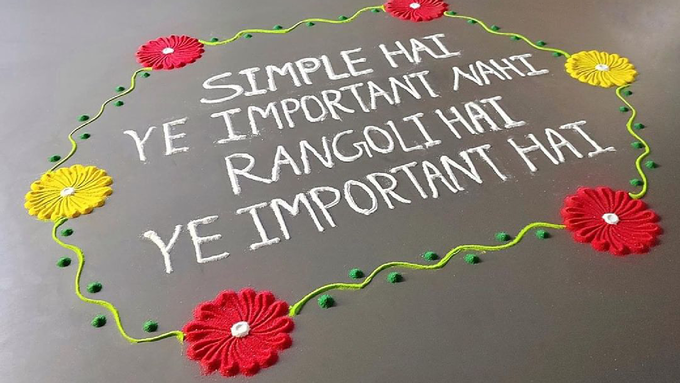 SIMPLE HAI
YE IMPORTANT NAHI
RANGOLI HAI
YE IMPORTANT HAI